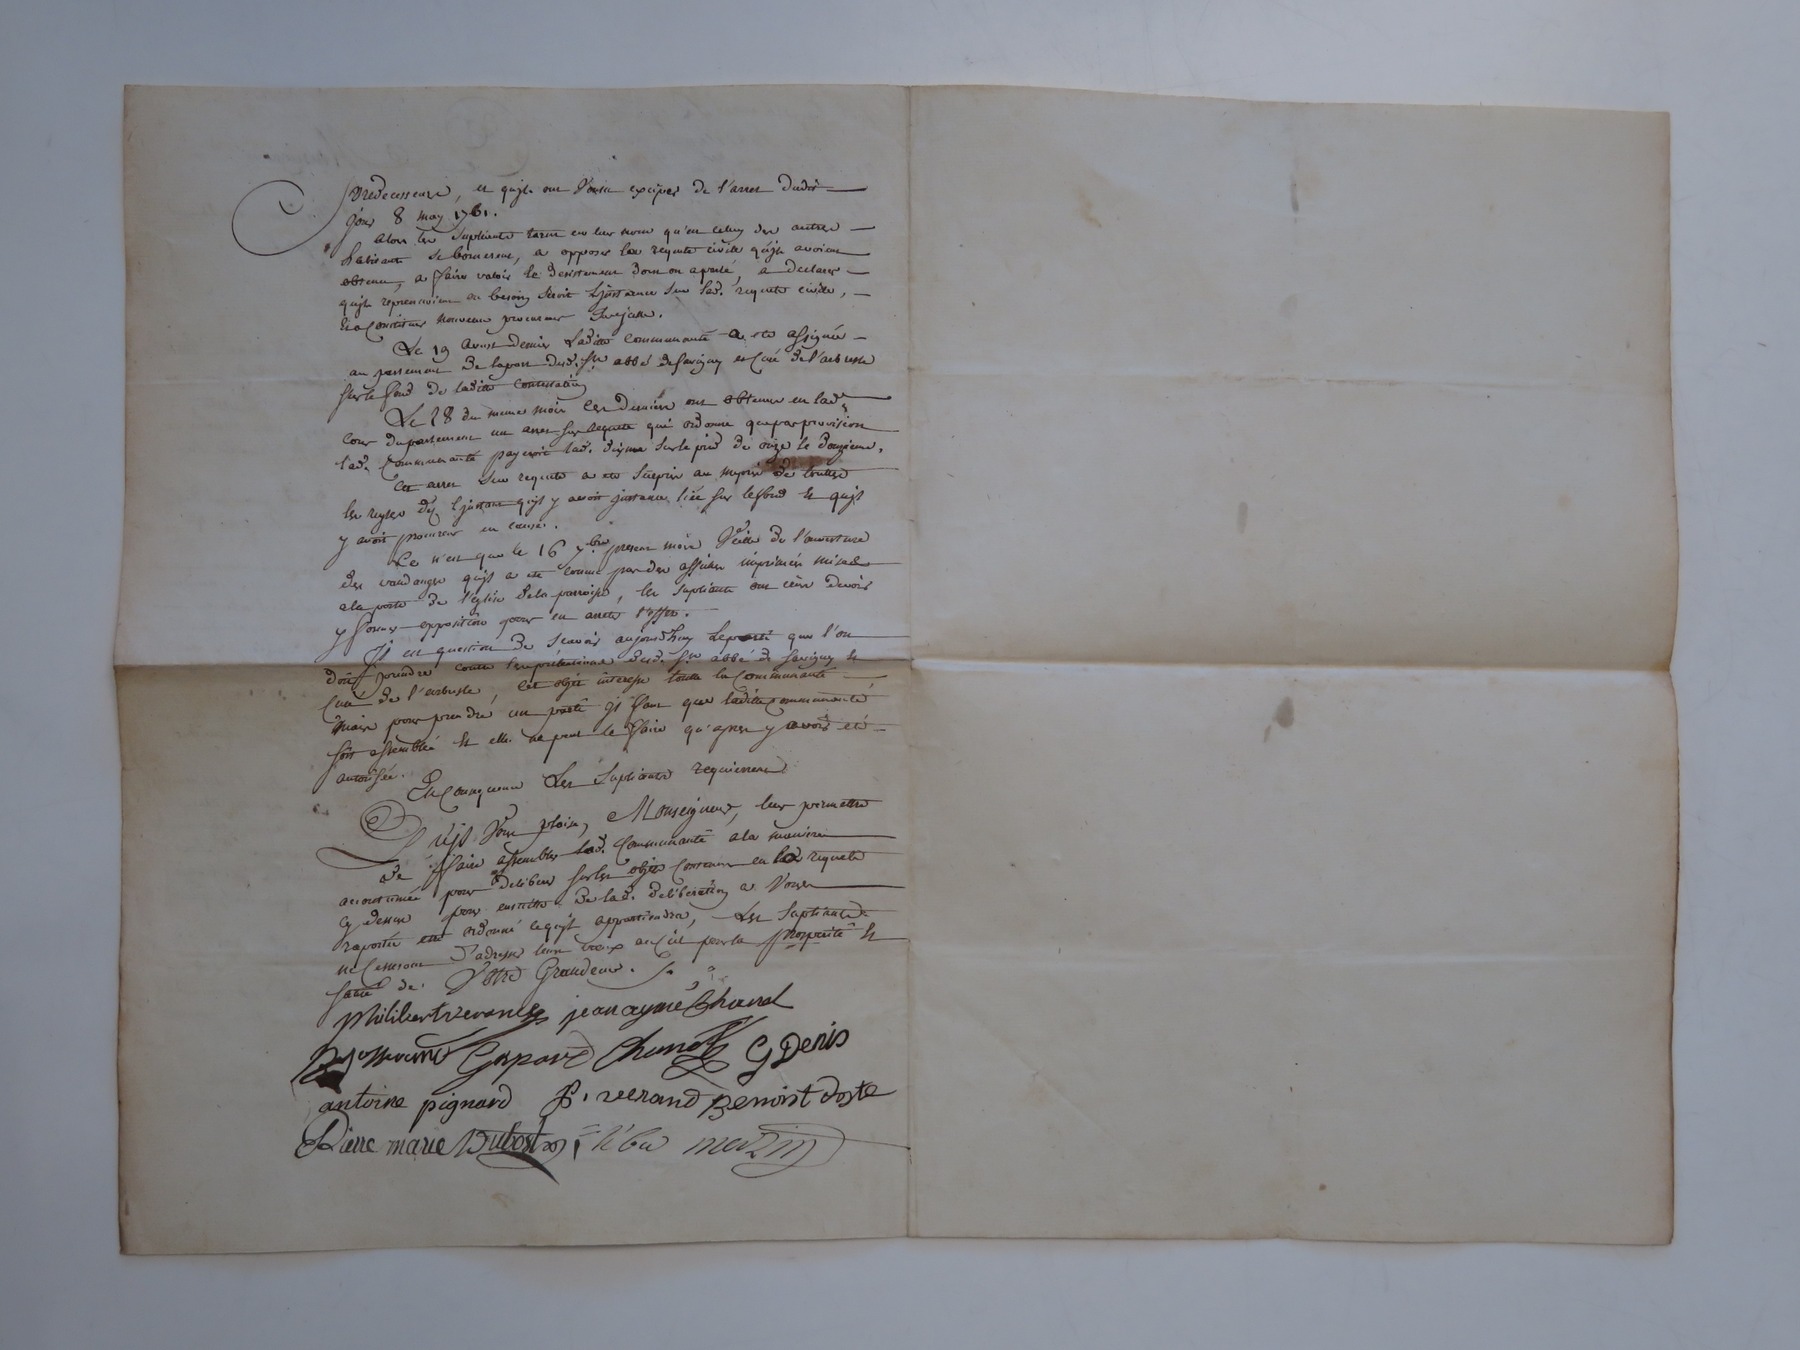 predecesseurs, et quils ont voulu exciper de l'arret dudit
jour 8 may 1761.
Alors les supliants tant en leur nom qu'en celuy des autres
habitants se bornerent, a opposer la requete civile quils avoient
obtenu, a faire valoir le desistement dont on a parlé, a declarer
quils reprenoient en besoin seroit l'instance sur lad. requete civile,
et a constituer nouveau procureur
Le 19 aoust dernier laditte communauté a été assignée
au parlement de la part dud. Sr. abbé de Savigny et curé de l'arbresle
sur le fond de laditte contestation
Le 28 du meme mois ces derniers ont obtenu en lad.
cour du parlement un arret sur requete qui ordonne que par provision
lad. communauté payeroit lad. disme sur le pied de onze le douzieme.
Cet arret sur requete a été surpris au mepris de touttes
les regles dez l'instant quil y avoit instance liée sur le fond et quil
y avoit procureur en cause.
Ce n'est que le 16 7bre present mois veille de l'ouverture
des vandanges quil a été connu par des affiches imprimées mises
a la porte de l'eglise de la parroisse, les supliants ont crû devoir
y former opposition pour en arreter l'effet.
Il est question de scavoir aujourdhuy le parti que l'on
doit prendre contre les pretentions dud. Sr. abbé de Savigny et
curé de l'arbresle, cet objet interesse toute la communauté
mais pour prendre un parti il faut que laditte communauté
soit assemblée et elle ne peut le faire qu'apres y avoir été
autorisée.
En consequence les supliants requierent
Quil vous plaise, Monseigneur, leur permettre
de faire assembler lad. communauté a la maniere
accoutumée pour deliberer sur les objets contenus en la requete
cy dessus pour ensuitte de lad. deliberation a vous
raportée etre ordonné ce quil appartiendra, les supliants
ne cesseront d'adresser leurs voeux au Ciel pour la prosperité et
santé de Votre Grandeur.
philibert verand jean aymé Chanel
Gaspard Chanel G Denis
antoine pignard B. verand Benoist Coste
Pierre marie Dubost